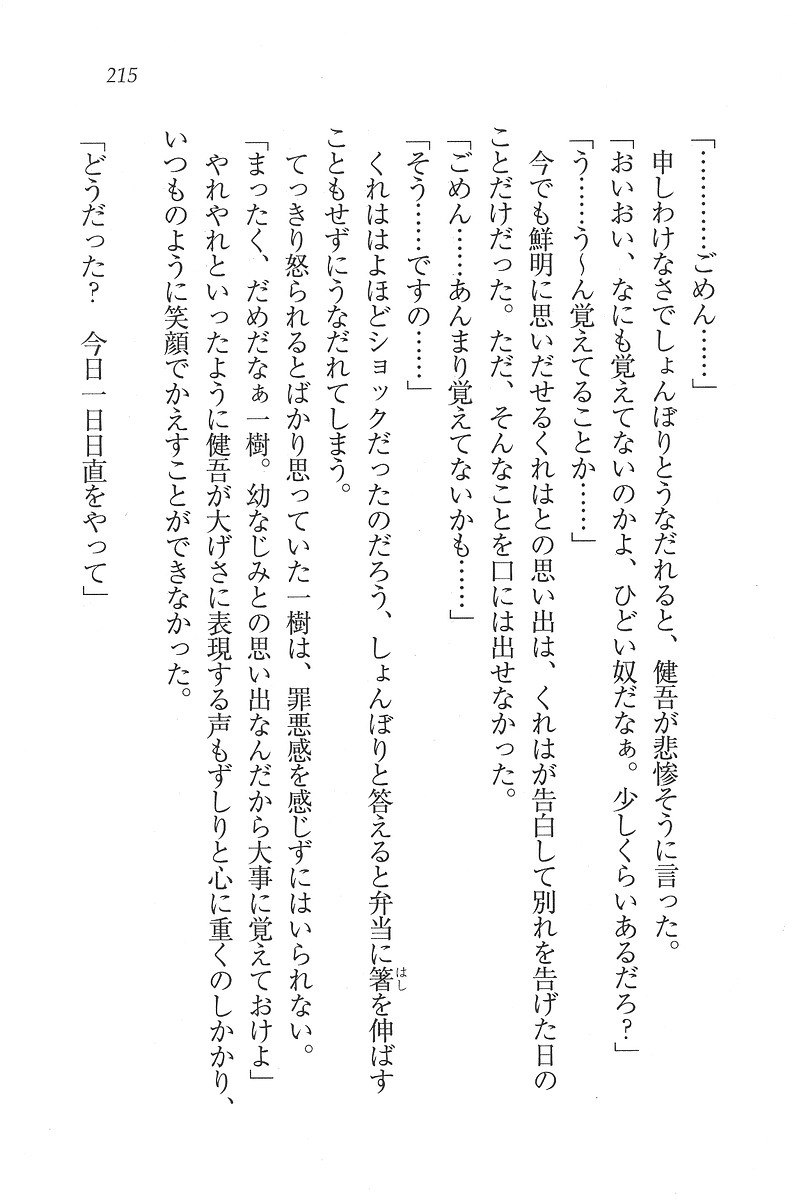 215
「…………ごめん……」
申しわけなさでしょんぼりとうなだれると、健吾が悲惨そうに言った。
「おいおい、なにも覚えてないのかよ、ひどい奴だなぁ。少しくらいあるだろ?」
「う……う〜ん覚えてることか……」
今でも鮮明に思いだせるくれはとの思い出は、くれはが告白して別れを告げた日の
ことだけだった。ただ、そんなことを口には出せなかった。
「ごめん……あんまり覚えてないかも……」
「そう……ですの……」
くれははよほどショックだったのだろう、しょんぼりと答えると弁当に箸を伸ばす
はし
こともせずにうなだれてしまう。
てっきり怒られるとばかり思っていた一樹は、罪悪感を感じずにはいられない。
「まったく、だめだなぁ一樹。幼なじみとの思い出なんだから大事に覚えておけよ」
やれやれといったように健吾が大げさに表現する声もずしりと心に重くのしかかり、
いつものように笑顔でかえすことができなかった。
「どうだった? 今日一日日直をやって」